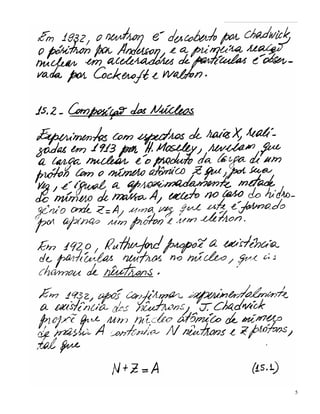 Em 1932, o neutron é descoberto por Chadwick,
o pósitron por Anderson, e a primeira reação
nuclear em aceleradores de partículas é obser-
vada por Cockcroft e Walton.
15.2 - Composição dos Núcleos
Experimentos com espectros de raios X, reali-
zados em 1913 por H. Moseley, revelam que
a carga nuclear é o produto da carga de um
próton com o número atômico Z que, por sua
vez, é igual, a aproximadamente metade
do número de massa A, exceto no caso do hidro-
gênio onde Z=A, uma vez que este é formado
por apenas um próton e um elétron.
Em 1920, Rutherford propõe a existência
de partículas neutras no núcleo, que as
chamou de nêutrons.
Em 1932, após confirmar experimentalmente
a existência dos nêutrons, J. Chadwick
propõe que um núcleo atômico de número
de massa A contenha N nêutrons e Z prótons,
tal que
N+Z=A (15.1)
5